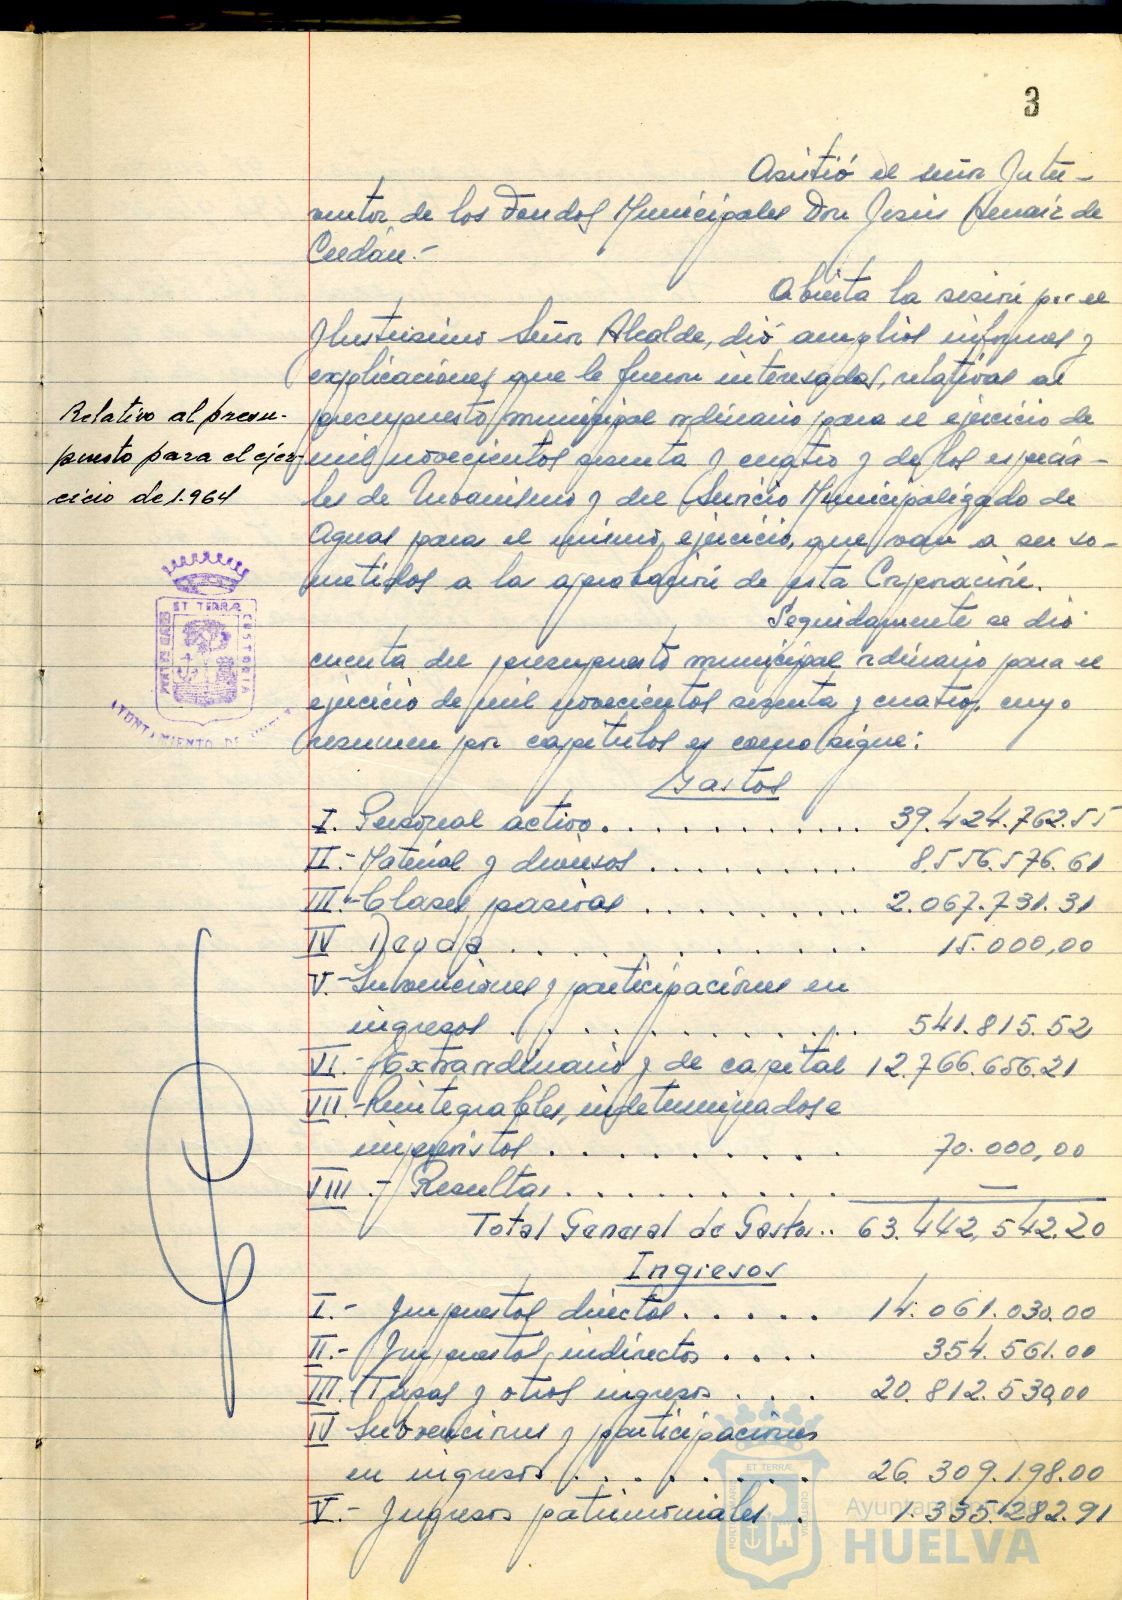 3
Asistió el señor Inter-
ventor de los Fondos Municipales Don Jesús de
Cerdán.-
Abierta la sesión por el
Ilustrísimo Señor Alcalde, dió amplios informes y
explicaciones que le fueron interesadas, relativas al
presupuesto municipal ordinario para el ejercicio de
mil novecientos sesenta y cuatro y de los especia-
les de Urbanismo y del Servicio Municipalizado de
Aguas para el mismo ejercicio, que van a ser so-
metidos a la aprobación de esta Corporación.
Relativo al presu-
puesto para el ejer-
cicio de 1.964
Seguidamente se dió
cuenta del presupuesto municipal ordinario para el
ejercicio de mil novecientos sesenta y cuatro, cuyo
resumen por capítulos es como sigue:
ET TERRÆ
CUSTODIA
AYUNTAMIENTO DE HUELVA
Gastos
I. Personal activo............ 39.424.762.55
II.- Material y diversos.......... 8.556.576.61
III.- Clases pasivas.......... 2.067.731.31
IV Deuda............ 15.000,00
V.- Subvenciones y participaciones en
ingresos.............. 541.815.52
VI.- Extraordinario y de capital 12.766.656.21
VII.- Reintegrables, indeterminados e
imprevistos.......... 70.000,00
VIII.- Resultas.......... —
Total General de Gastos.. 63.442,542.20
Ingresos
I.- Impuestos directos...... 14.061.030.00
II.- Impuestos indirectos.... 354.561.00
III. Tasas y otros ingresos... 20.812.530,00
IV Subvenciones y participaciones
en ingresos........ 26.309.198.00
V.- Ingresos patrimoniales. 1.335.282.91
ET TERRÆ
Ayuntamiento de
HUELVA